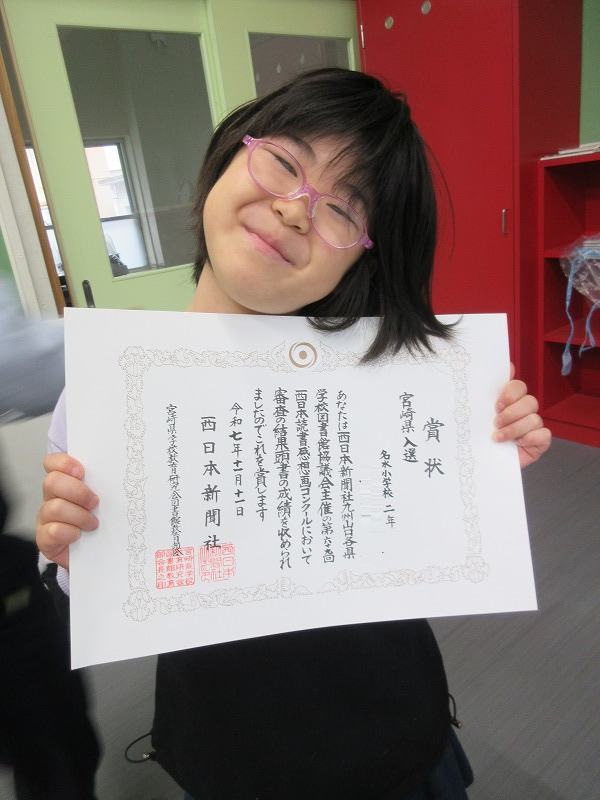 賞状
宮崎県入選
名水小学校 二年
あなたは西日本新聞社九州山口各県
学校図書館協議会主催の第六十回
西日本読書感想画コンクールにおいて
審査の結果頭書の成績を収められ
ましたのでこれを賞します
令和七年十二月十一日
西日本新聞社
宮崎県学校教育研究会